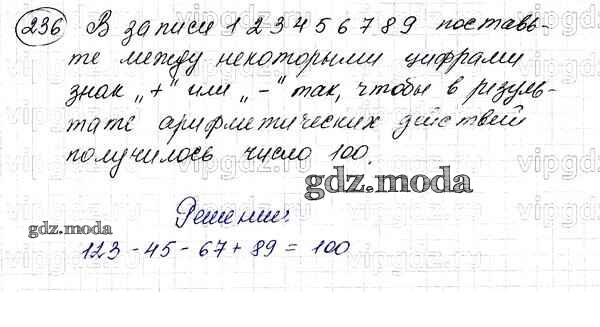 236 В записи 1 2 3 4 5 6 7 8 9 поставь-
те между некоторыми цифрами
знак „+" или „-" так, чтобы в резуль-
тате арифметических действий
получилось число 100.
gdz.moda
Решение:
gdz.moda
123 - 45 - 67 + 89 = 100